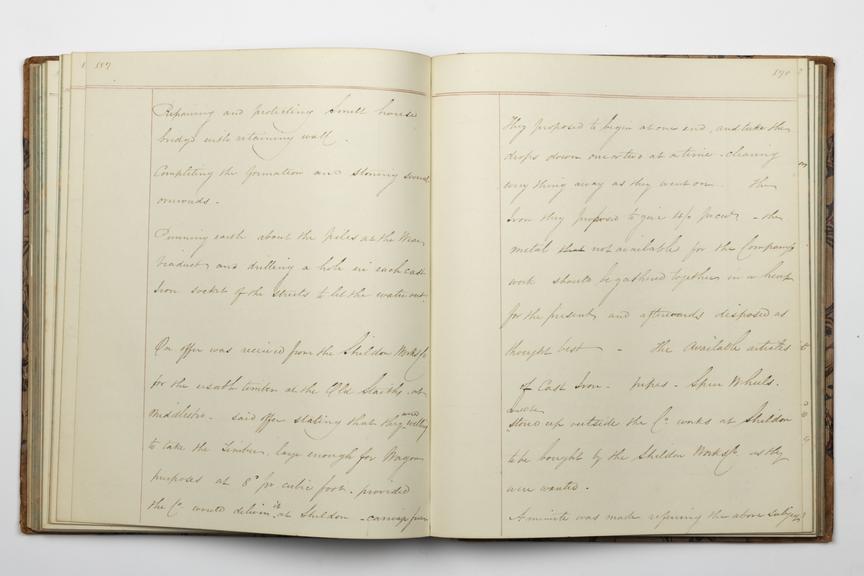 157
Repairing and protecting Smelt house
bridge with retaining wall.
Completing the formation and stoning
onwards -
Punning earth about the piles at the Wear
viaduct, and drilling a hole in each cast
Iron socket of the struts to let the water out.
An offer was received from the Shildon Works Co
for the usable timber at the Old Staiths - at
Middlesbro - said offer stating that they were willing
to take the Timber, large enough for Wagon
purposes at 8d pr cubic foot - provided
the Co would deliver it at Shildon - carriage free
They proposed to begin at one end, and take the
drops down one or two at a time - clearing
everything away as they went on. The
Iron they proposed to give - the
metal that not available for the Company's
work should be gathered together in a heap
for the present, and afterwards disposed as
thought best - the Available articles
of Cast Iron - pipes - Spur Wheels.
stored up outside the Co works at Shildon
to be bought by the Shildon Works Co as they
were wanted.
A minute was made referring the above subject